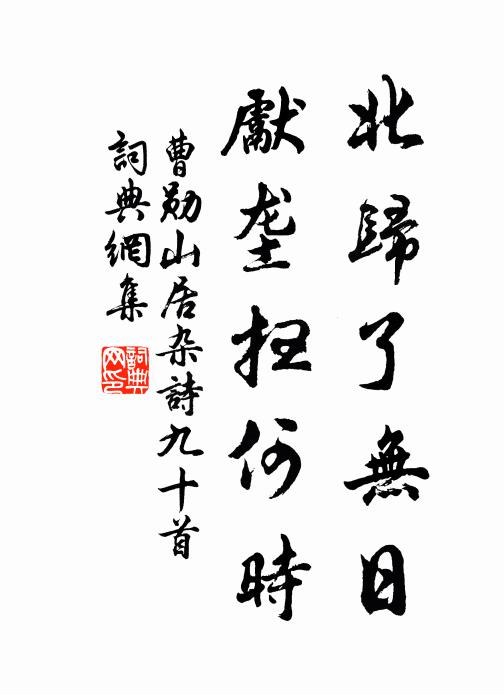 北歸了無日
獻垄何時
曹勋山居杂詩九十首
詞典網集
詞典网印